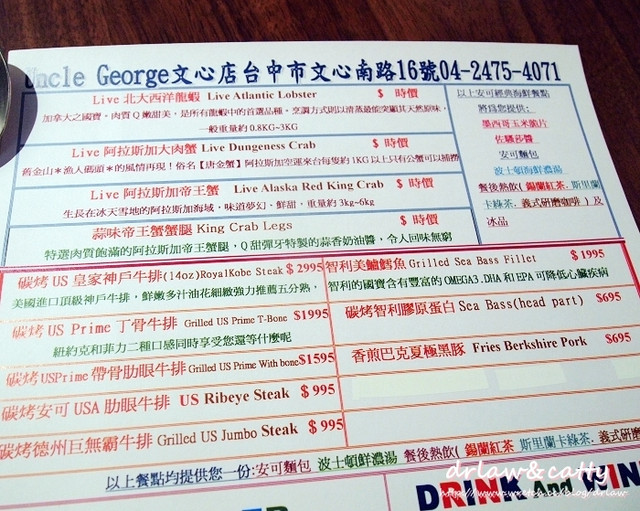 Uncle George文心店台中市文心南路16號04-2475-4071
Live 北大西洋龍蝦 Live Atlantic Lobster $ 時價
加拿大之國寶，肉質Q嫩甜美，是所有龍蝦中的首選品種，烹調方式則以清蒸最能突顯其天然原味，
一般重量約 0.8KG~3KG
Live 阿拉斯加大肉蟹 Live Dungeness Crab $ 時價
舊金山＊漁人碼頭＊的風情再現！俗名【唐金蟹】阿拉斯加空運來台每隻約1KG以上只有公蟹可以捕撈
Live 阿拉斯加帝王蟹 Live Alaska Red King Crab $ 時價
生長在冰天雪地的阿拉斯加海域，味道夢幻、鮮甜，重量約 3kg~6kg
蒜味帝王蟹蟹腿 King Crab Legs $ 時價
特選肉質飽滿的阿拉斯加帝王蟹腿，Q甜彈牙特製的蒜香奶油醬，令人回味無窮
以上安可經典海鮮餐點
將為您提供：
墨西哥玉米脆片
佐騷莎醬
安可麵包
波士頓海鮮濃湯
餐後熱飲( 錫蘭紅茶、斯里蘭
卡綠茶、義式研磨咖啡 ) 及
冰品
碳烤 US 皇家神戶牛排(14oz)RoyalKobe Steak $ 2995
美國進口頂級神戶牛排，鮮嫩多汁油花細緻強力推薦五分熟，
碳烤 US Prime 丁骨牛排 Grilled US Prime T-Bone $1995
紐約克和菲力二種口感同時享受您還等什麼呢
碳烤USPrime 帶骨肋眼牛排 Grilled US Prime With bone $1595
碳烤安可 USA 肋眼牛排 US Ribeye Steak $ 995
碳烤德州巨無霸牛排 Grilled US Jumbo Steak $ 995
智利美鱸鱈魚 Grilled Sea Bass Fillet $ 1995
智利的國寶含有豐富的 OMEGA3.DHA 和EPA可降低心臟疾病
碳烤智利膠原蛋白 Sea Bass(head part) $695
香煎巴克夏極黑豚 Fries Berkshire Pork $695
以上餐點均提供您一份:安可麵包 波士頓鮮濃湯 餐後熱飲( 錫蘭紅茶 斯里蘭卡綠茶、義式研磨
DRINK And WIN
drlaw & catty